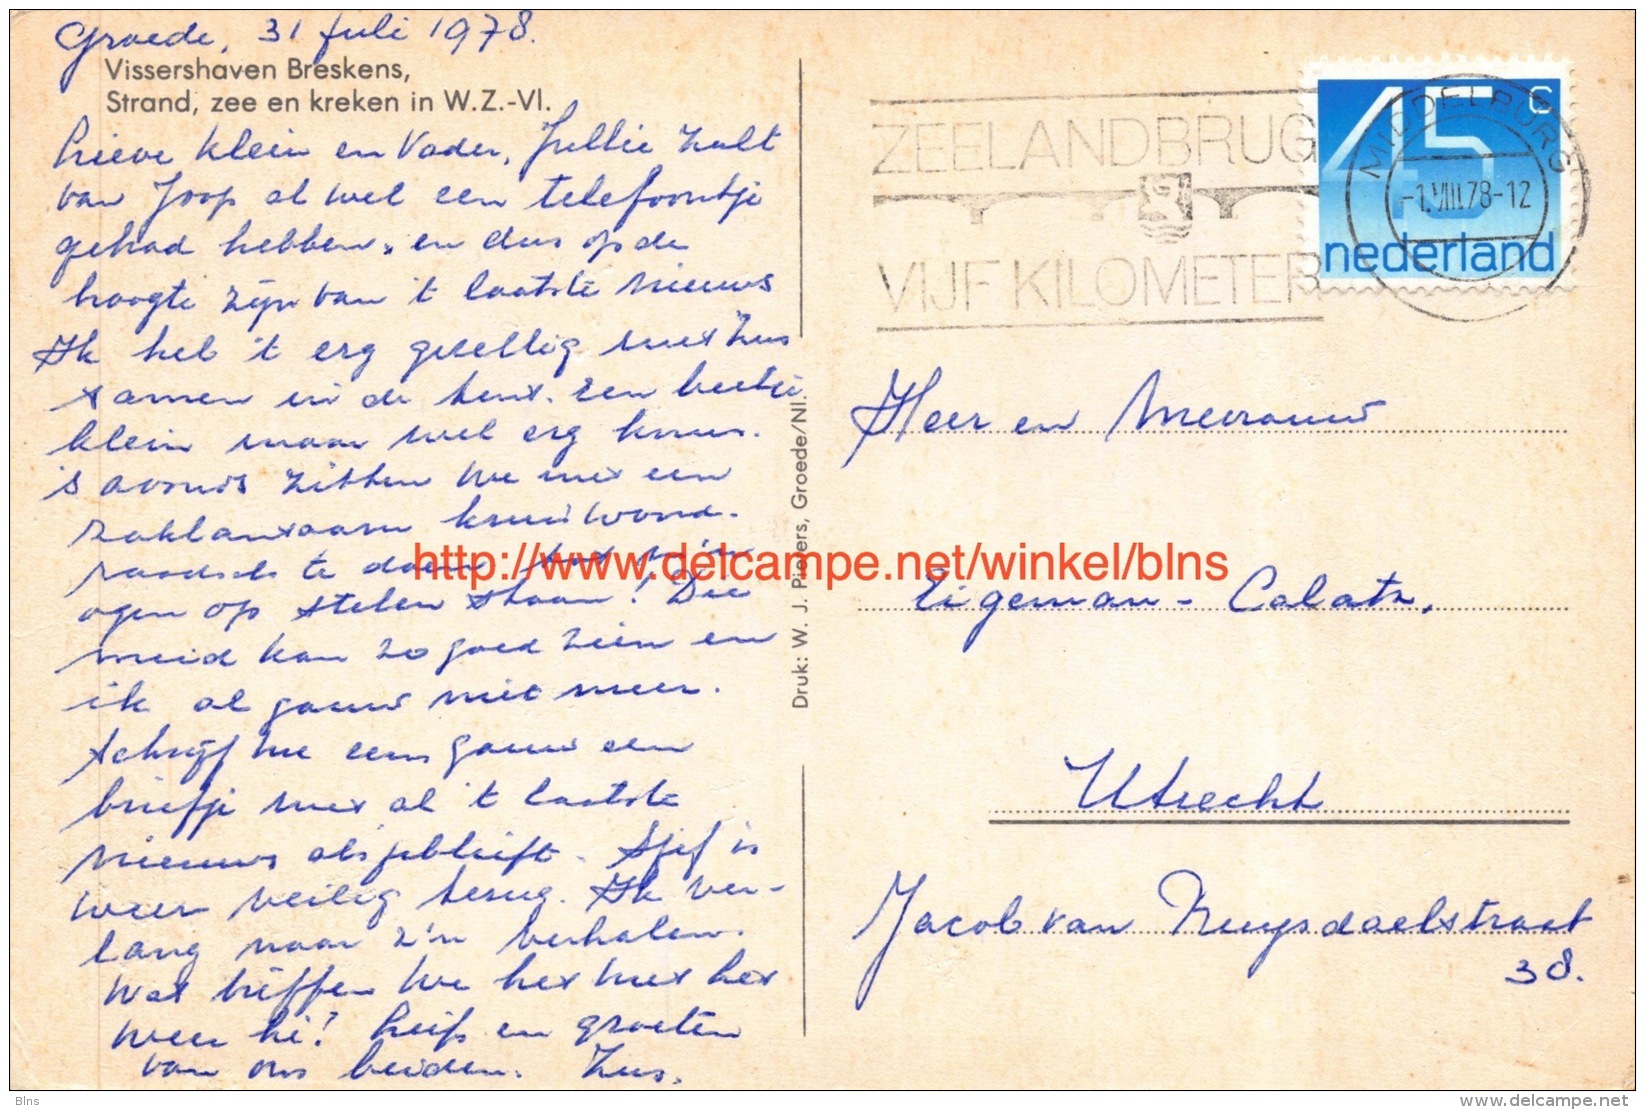 Groede, 31 Juli 1978.
Vissershaven Breskens,
Strand, zee en kreken in W.Z.-Vl.
Lieve klein en Vader, Jullie zult
van Joop al wel een telefoontje
gehad hebben, en dus op de
hoogte zijn van 't laatste nieuws
Ik heb 't erg gezellig met Zus
samen in de tent. Een beetje
klein maar wel erg knus.
's avonds zitten we met een
zaklantaarn kruiswoord-
raadsels te doen tot m'n
ogen op stelen staan! Die
meid kan zo goed zien en
ik al gauw niet meer.
Schrijf me eens gauw een
briefje met al 't laatste
nieuws alsjeblieft. Sjef is
weer veilig terug. Ik ver-
lang naar z'n verhalen.
Wat treffen we het met het
weer hè! liefs en groeten
van ons beiden. Zus.
Druk: W. J. Pieters, Groede/Nl.
ZEELANDBRUG
VIJF KILOMETER
45 c
nederland
MIDDELBURG
-1.VIII.78-12
Heer en Mevrouw
Eigeman - Calatz,
Utrecht
Jacob van Ruysdaelstraat
38.
http://www.delcampe.net/winkel/blns
Blns
delcampe.net